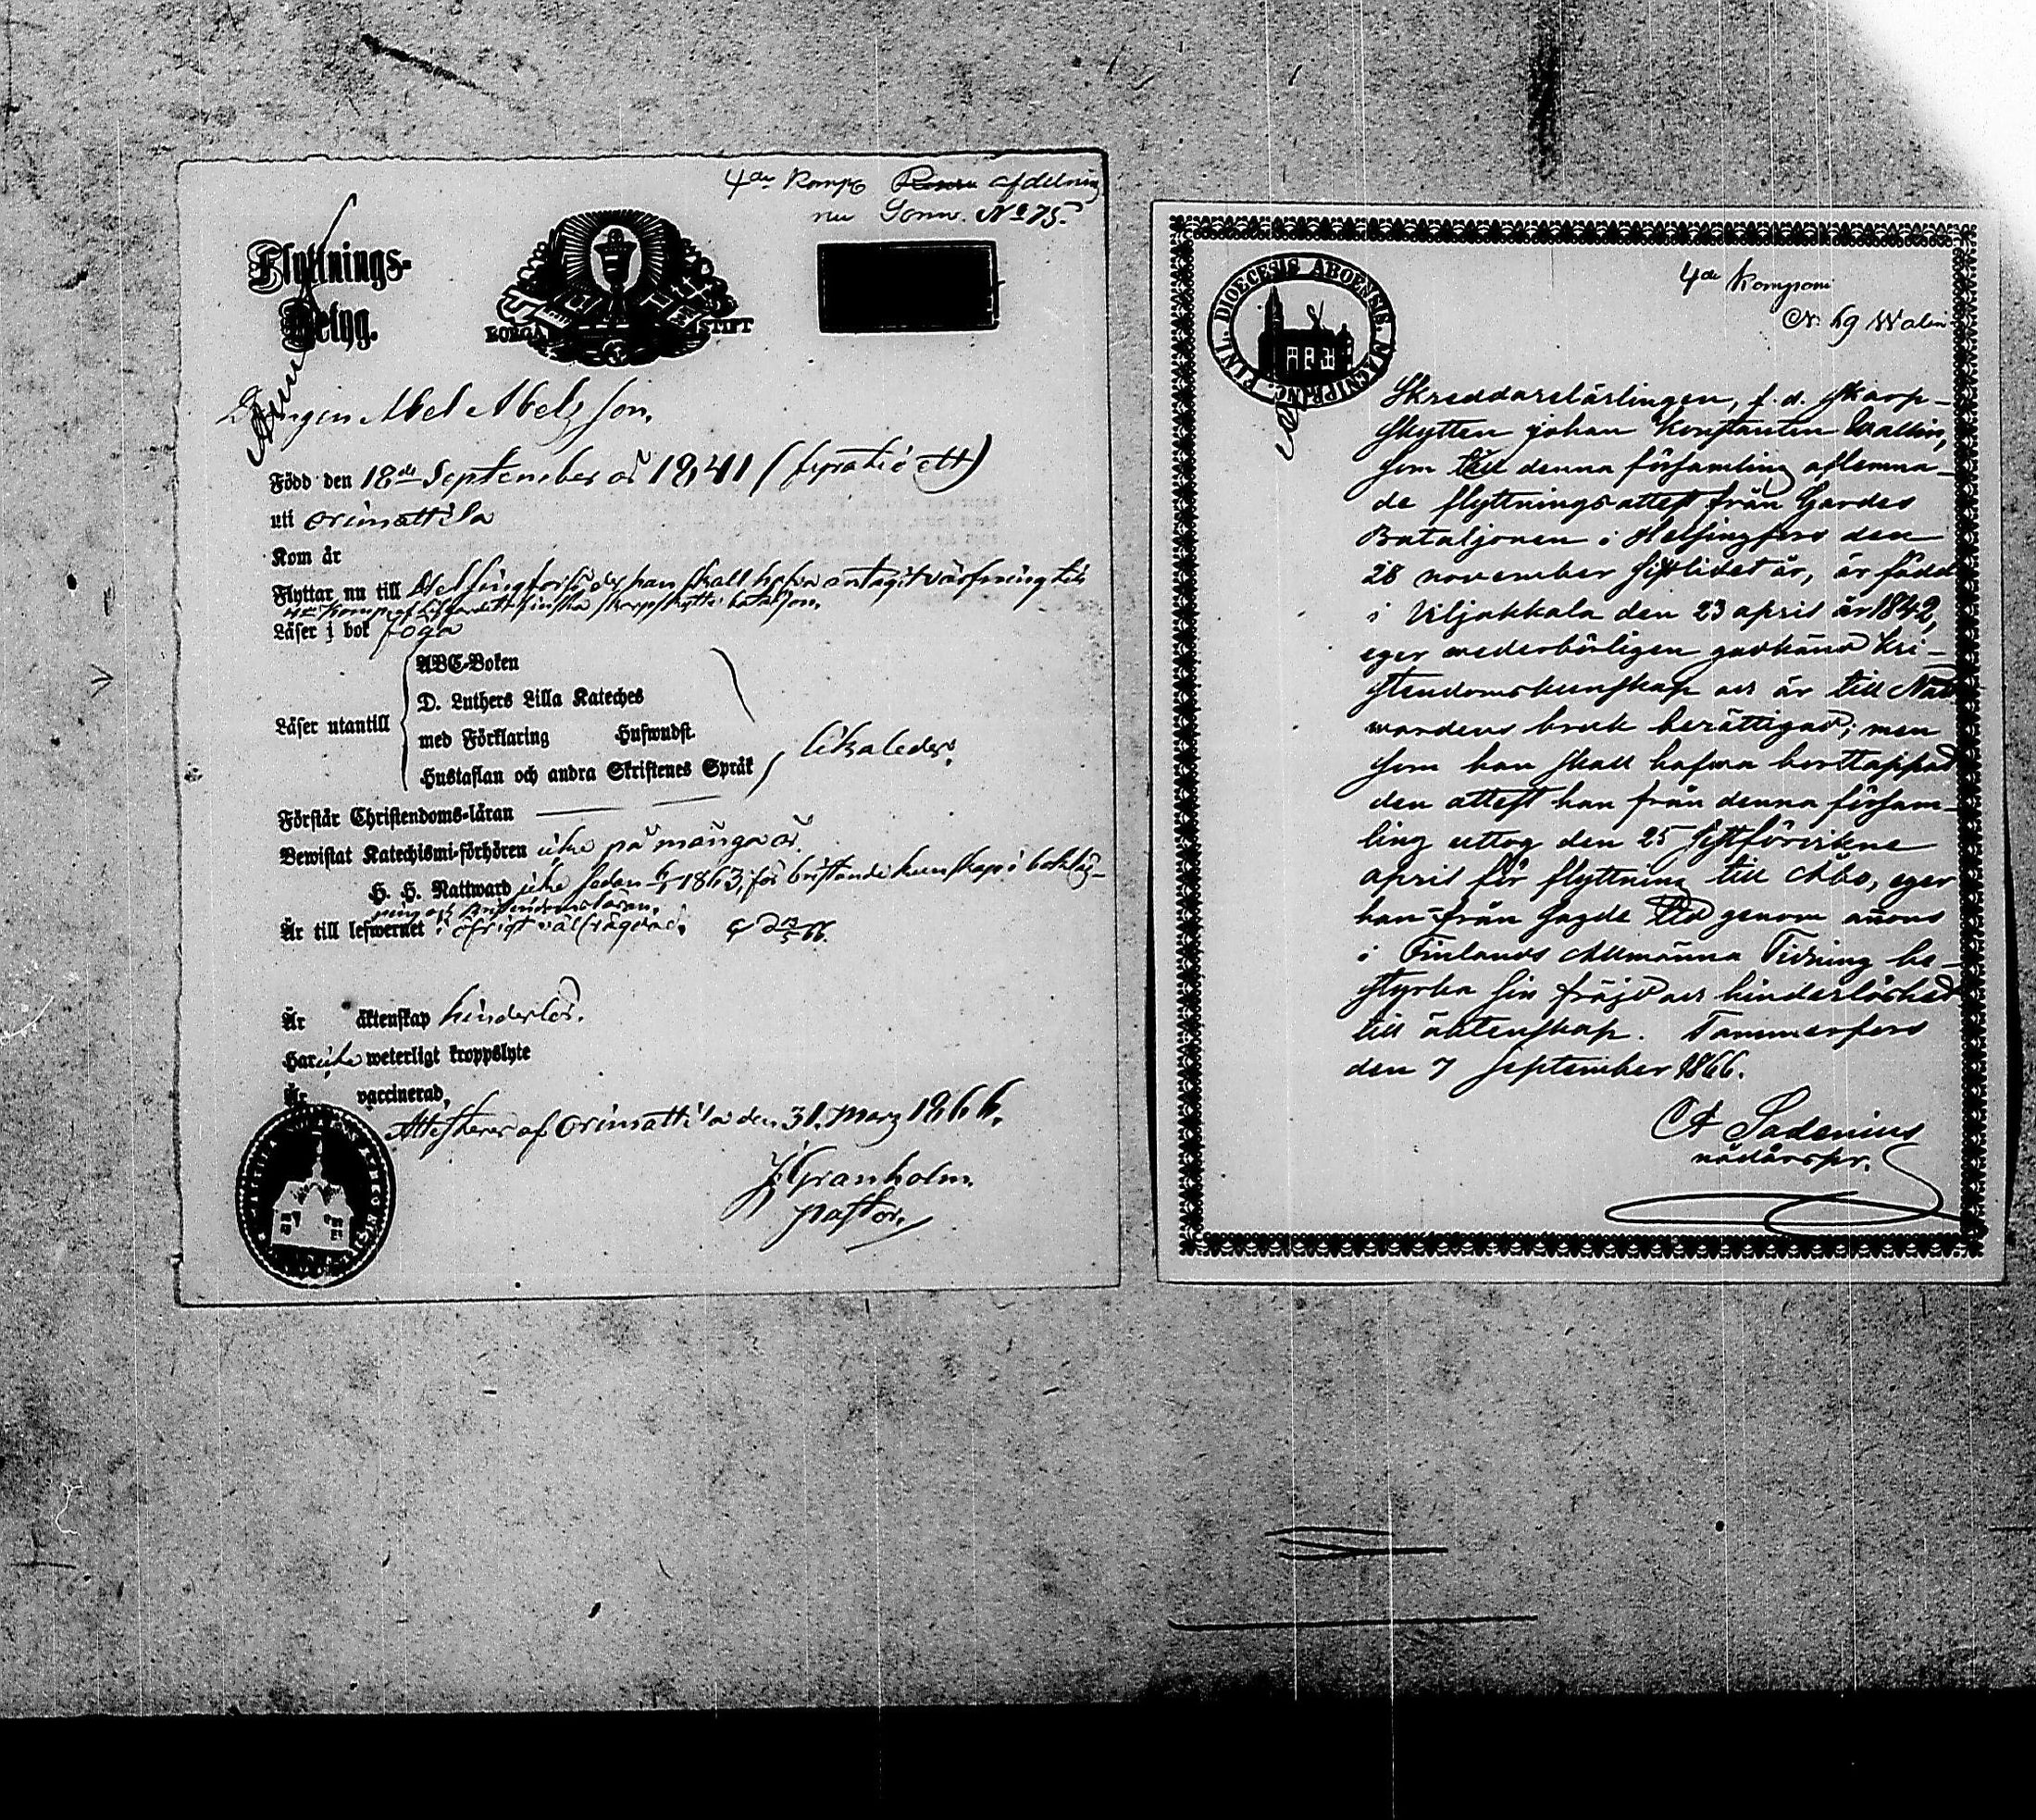 4de Komp. afdelning
nu Sonn. No 75.
Flyttnings-
Betyg.
BORGÅ STIFT
Drängen Abel Abelsson.
Född den 18de September år 1841 (fyratio ett)
uti Orimattila
Kom år
Flyttar nu till Helsingfors der han skall hafva antagit värfning till
4de komp. af Lifgardets finska skarpskytte bataljon.
Läser i bok föga
ABC-Boken
D. Luthers Lilla Kateches
med Förklaring Hufwudst.
Läser utantill
Hustaflan och andra Skriftenes Språk
likaledes.
Förstår Christendoms-läran
Bewistat Katechismi-förhören icke på många år.
H. H. Nattward icke sedan 1863, för bristande kunskap i boklä-
ning och kristendomsläran.
Är till lefwernet i öfrigt välfrägdad.
Är äktenskap hinderlös.
Har icke weterligt kroppslyte
Är vaccinerad,
Attesterar af Orimattila den 31. Mars 1866.
J. Granholm.
pastor.
DIOECESIS ABOENSIS. MAGNI PRINC. FINL.
4de Kompani
N: 69 Walin
Skreddarelärlingen, f. d. Skarp-
skytten Johan Konstantin Wallin,
som till denna församling aflemna-
de flyttningsattest från Gardes
Bataljonen i Helsingfors den
28 november sistlidet år, är född
i Viljakkala den 23 april år 1842,
eger wederbörligen godkänd kri-
stendomskunskap och är till Natt
wardens bruk berättigad; men
som han skall hafwa borttappad
den attest han från denna försam-
ling uttog den 25 sistförvikne
april för flyttning till Åbo, eger
han från sagde tid genom annons
i Finlands Allmänna Tidning be-
styrka sin fräjd och hinderlöshet
till äktenskap. Tammerfors
den 7 September 1866.
CA Sadenius
nådårspr.